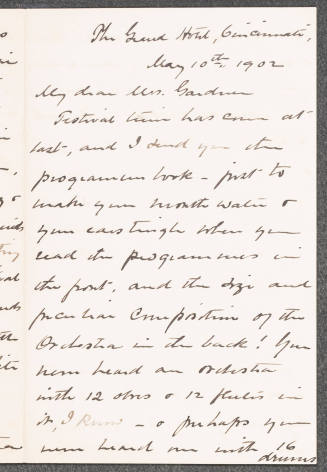 The Grand Hotel, Cincinnati,
May 10th, 1902
My dear Mrs. Gardner
Festival time has come at
last, and I send you the
programme book - just to
make your mouth water &
your ears tingle when you
read the programmes in
the front, and the size and
peculiar composition of the
Orchestra in the back! You
never heard an orchestra
with 12 oboes & 12 flutes in
it, I know - & perhaps you
never heard one with 16
drums